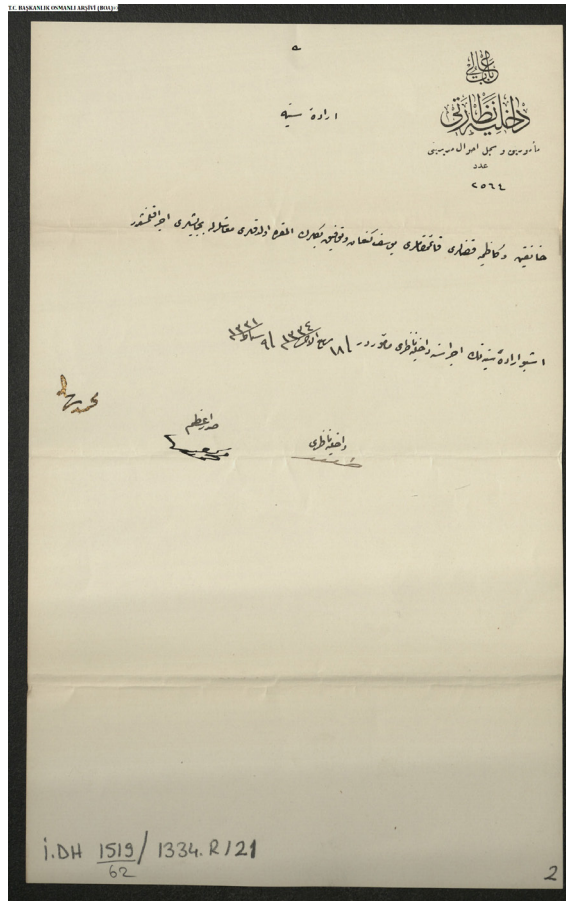 T.C. BAŞKANLIK OSMANLI ARŞİVİ (BOA)
باب عالی
داخلیه نظارتی
مأمورین و سجل احوال مدیریتی
عدد
٢٥٦٤
ارادهٔ سنیه
خانقین و كاظمیه قضالری قائمقاملری یوسف كنعان و توفیق بكلرك اولدقلری بجایشلری اجرا قلنمشدر
اشبو ارادهٔ سنیه‌نك اجراسنه داخلیه ناظری مأموردر ١٨ ربیع الآخر ١٣٣٤ ٩ شباط ١٣٣١
محمد رشاد
صدر اعظم
داخلیه ناظری
محمد سعید
طلعت
İ.DH 1519/62 / 1334.R/21
2